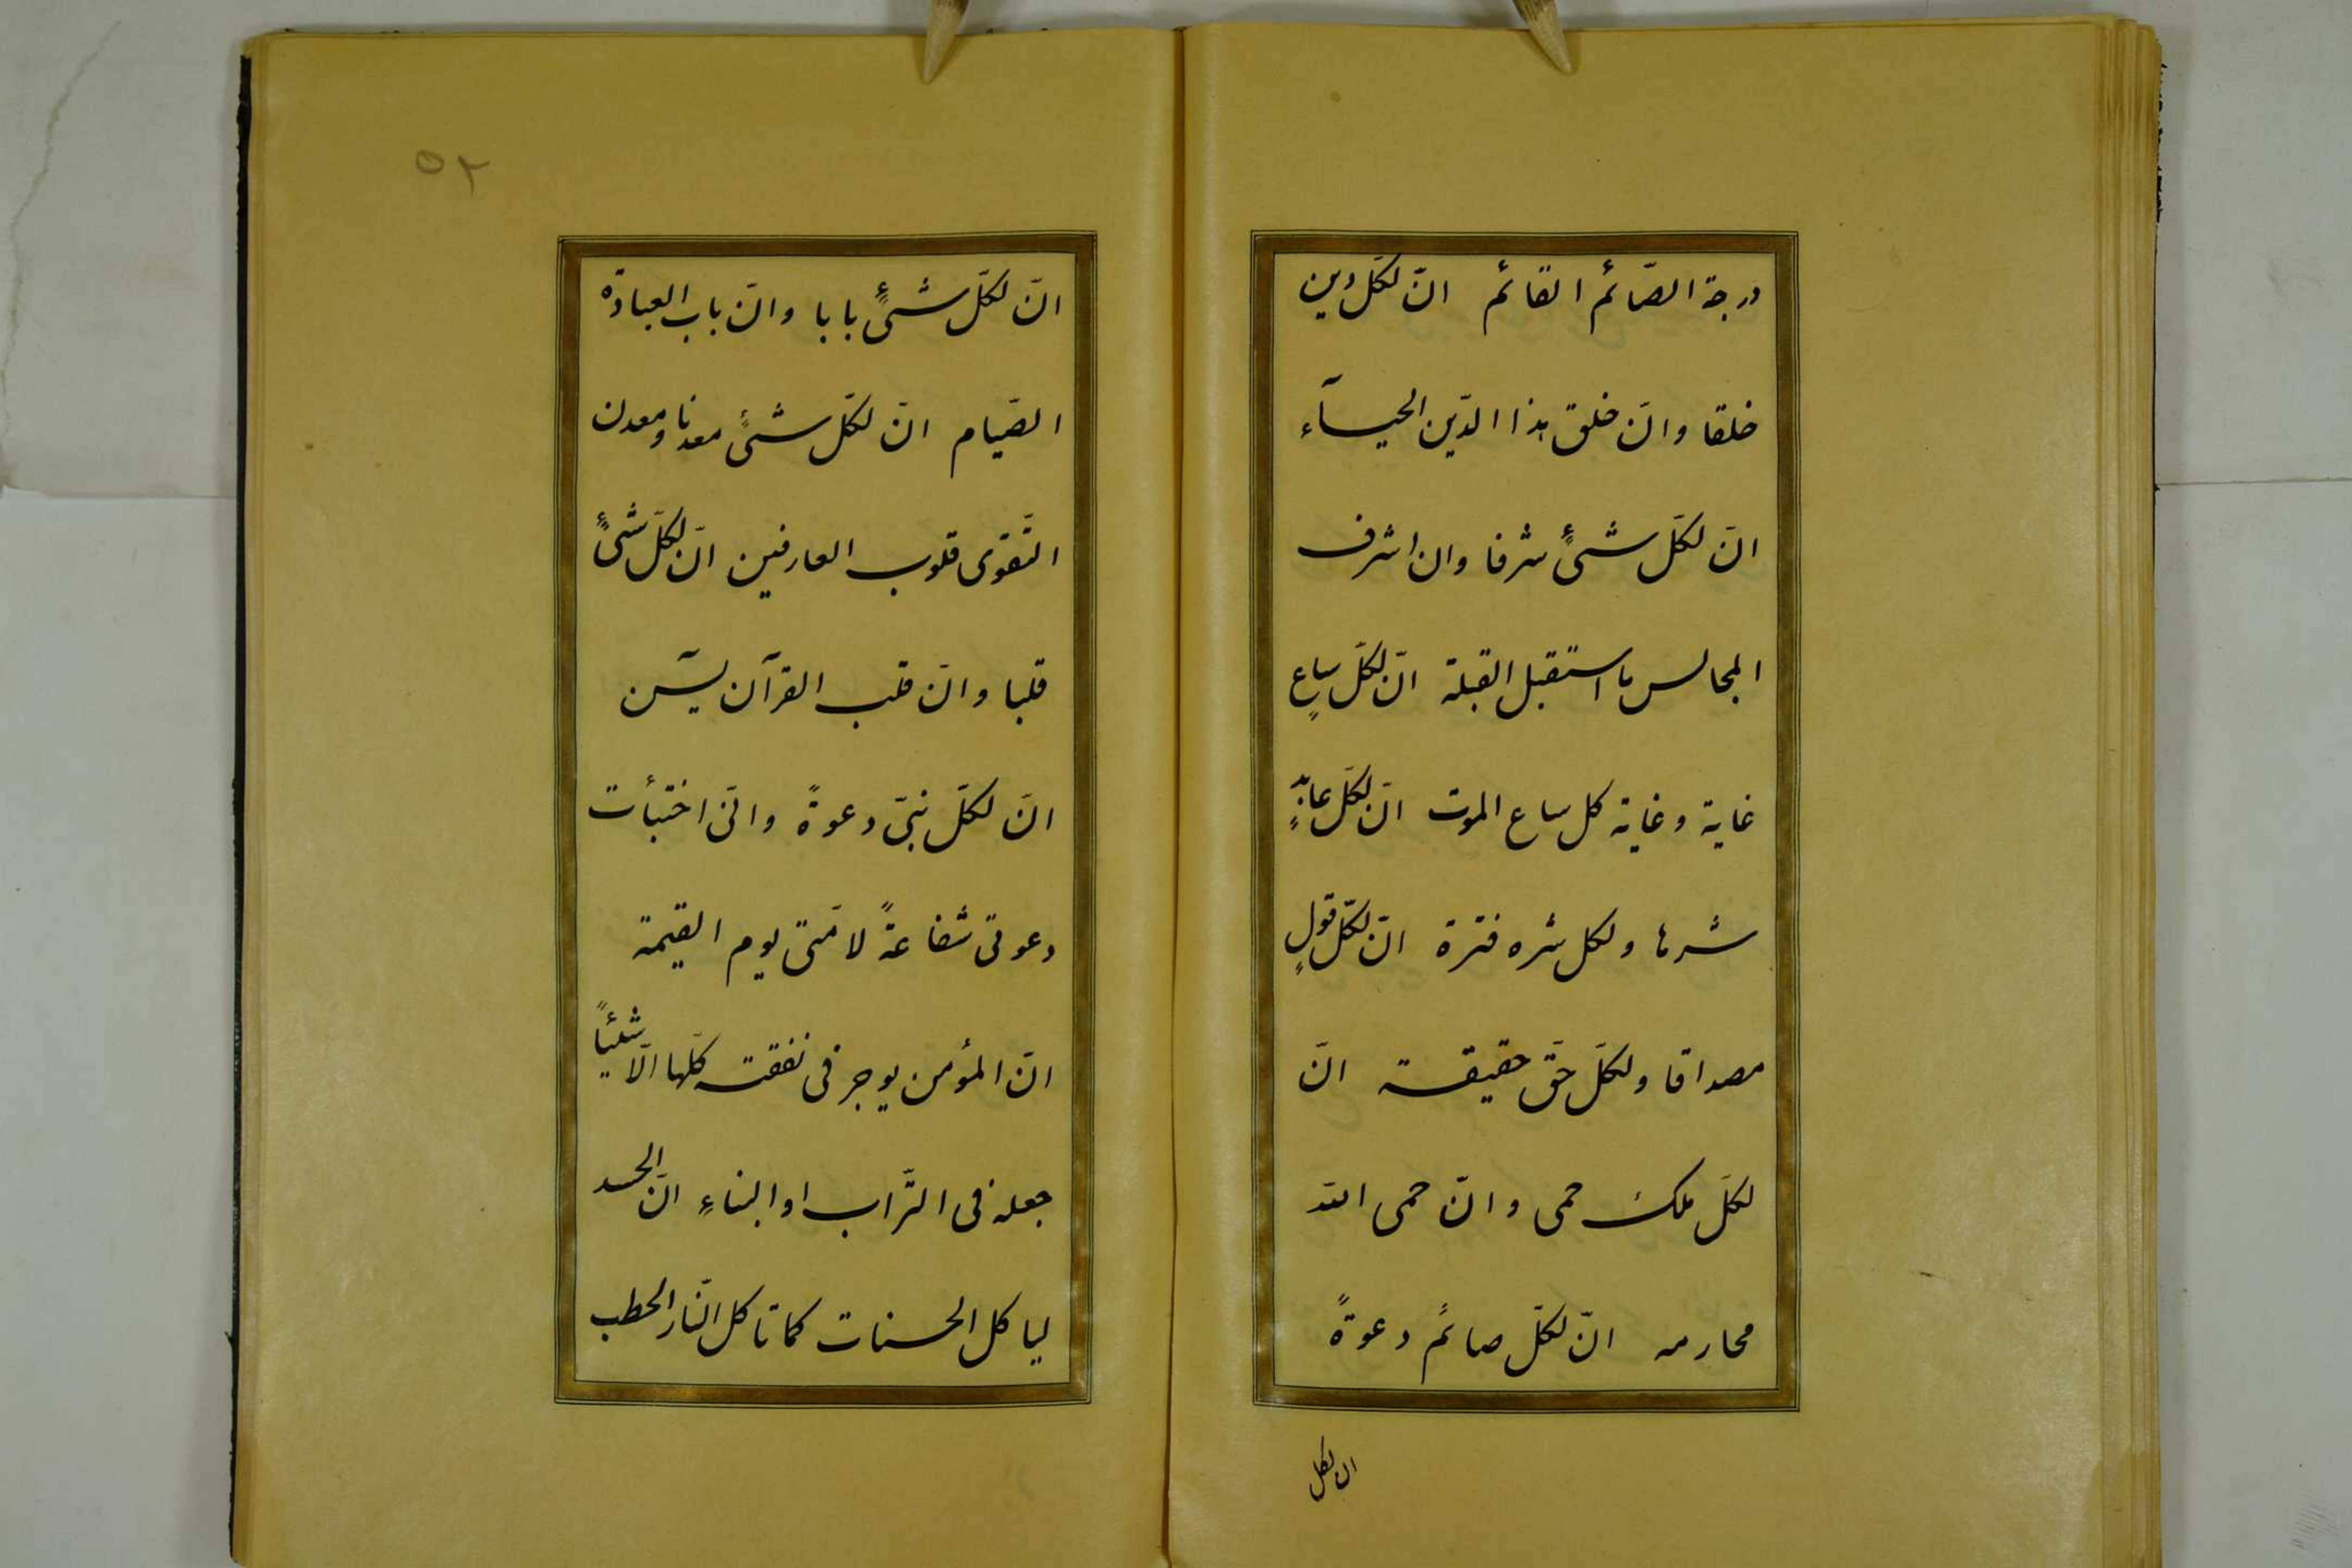 درجة الصّائم القائم انّ لكلّ دين
خلقا وانّ خلق هذا الدّين الحيآء
انّ لكلّ شیءٍ شرفا وان اشرف
المجالس ما استقبل القبلة انّ لكلّ ساعٍ
غاية وغاية كل ساع الموت انّ لكلّ عابدٍ
شرها ولكل شره فترة انّ لكلّ قولٍ
مصداقا ولكلّ حقّ حقيقة انّ
لكلّ ملك حمى وانّ حمى الله
محارمه انّ لكلّ صائم دعوةً
ان لكل
٥٢
انّ لكلّ شیءٍ بابا وانّ باب العبادة
الصّيام انّ لكلّ شیءٍ معدنا ومعدن
التّقوى قلوب العارفين انّ لكلّ شیءٍ
قلبا وانّ قلب القرآن يسٓن
انّ لكلّ نبیّ دعوةً وانّی اختبأت
دعوتی شفاعةً لامّتی يوم القيمة
انّ المؤمن يوجر فی نفقته كلّها الّا شيئاً
جعله فی التّراب او البناءِ انّ الحسد
لياكل الحسنات كما تاكل النّار الحطب